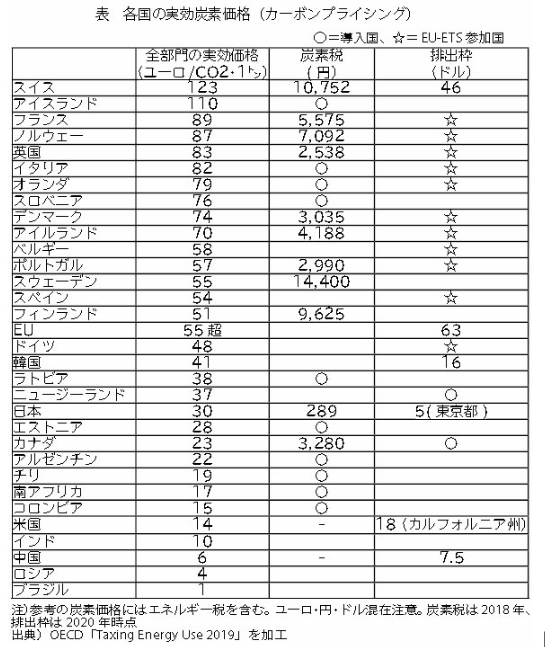 表 各国の実効炭素価格（カーボンプライシング）
○=導入国、☆= EU-ETS 参加国
全部門の実効価格 炭素税 排出枠
(ユーロ/CO2・1㌧) (円) (ドル)
スイス 123 10,752 46
アイスランド 110 ○
フランス 89 5,575 ☆
ノルウェー 87 7,092 ☆
英国 83 2,538 ☆
イタリア 82 ○ ☆
オランダ 79 ○ ☆
スロベニア 76 ○
デンマーク 74 3,035 ☆
アイルランド 70 4,188 ☆
ベルギー 58 ☆
ポルトガル 57 2,990 ☆
スウェーデン 55 14,400
スペイン 54 ☆
フィンランド 51 9,625
EU 55 超 63
ドイツ 48 ☆
韓国 41 16
ラトビア 38 ○
ニュージーランド 37 ○
日本 30 289 5( 東京都 )
エストニア 28 ○
カナダ 23 3,280 ○
アルゼンチン 22 ○
チリ 19 ○
南アフリカ 17 ○
コロンビア 15 ○
米国 14 - 18 (カルフォルニア州)
インド 10
中国 6 - 7.5
ロシア 4
ブラジル 1
注) 参考の炭素価格にはエネルギー税を含む。ユーロ・円・ドル混在注意。炭素税は 2018 年、
排出枠は 2020 年時点
出典）OECD「Taxing Energy Use 2019」を加工